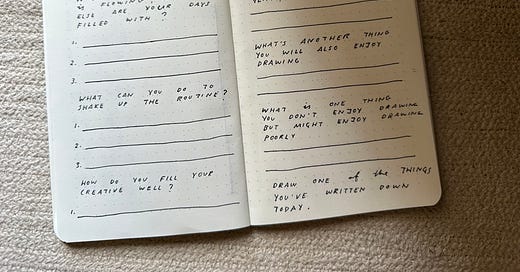 FLOWING?
ELSE ARE YOUR DAYS
FILLED WITH?
1.
2.
3.
WHAT CAN YOU DO TO
SHAKE UP THE ROUTINE?
1.
2.
3.
HOW DO YOU FILL YOUR
CREATIVE WELL?
1.
WHAT'S ANOTHER THING
YOU WILL ALSO ENJOY
DRAWING
WHAT is ONE THING
YOU DON'T ENJOY DRAWING
BUT MIGHT ENJOY DRAWING
POORLY
DRAW ONE of the THINGS
YOU'VE WRITTEN DOWN
TODAY.